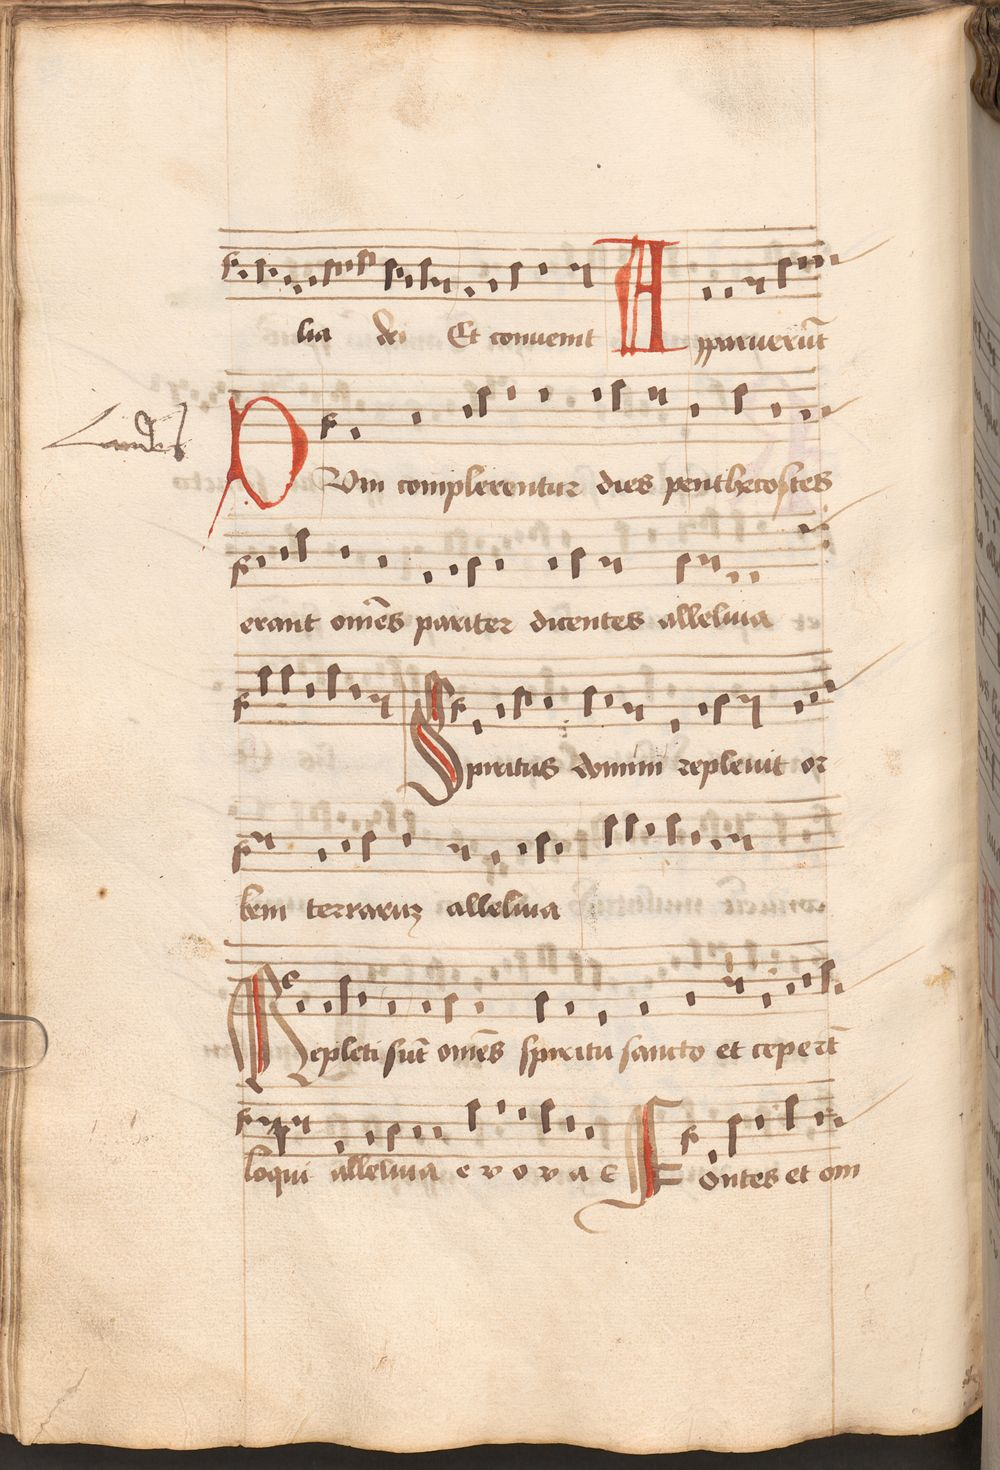 lia dei Et convenit Apparuerūt
Laudes
DUm complerentur dies penthecostes
erant om̄es pariter dicentes alleluia
Spiritus domini repleuit or
bem terraruꝫ alleluia
Repleti sūt om̄es spiritu sancto et cepert̄
loqui alleluia e v o v a e Fontes et om